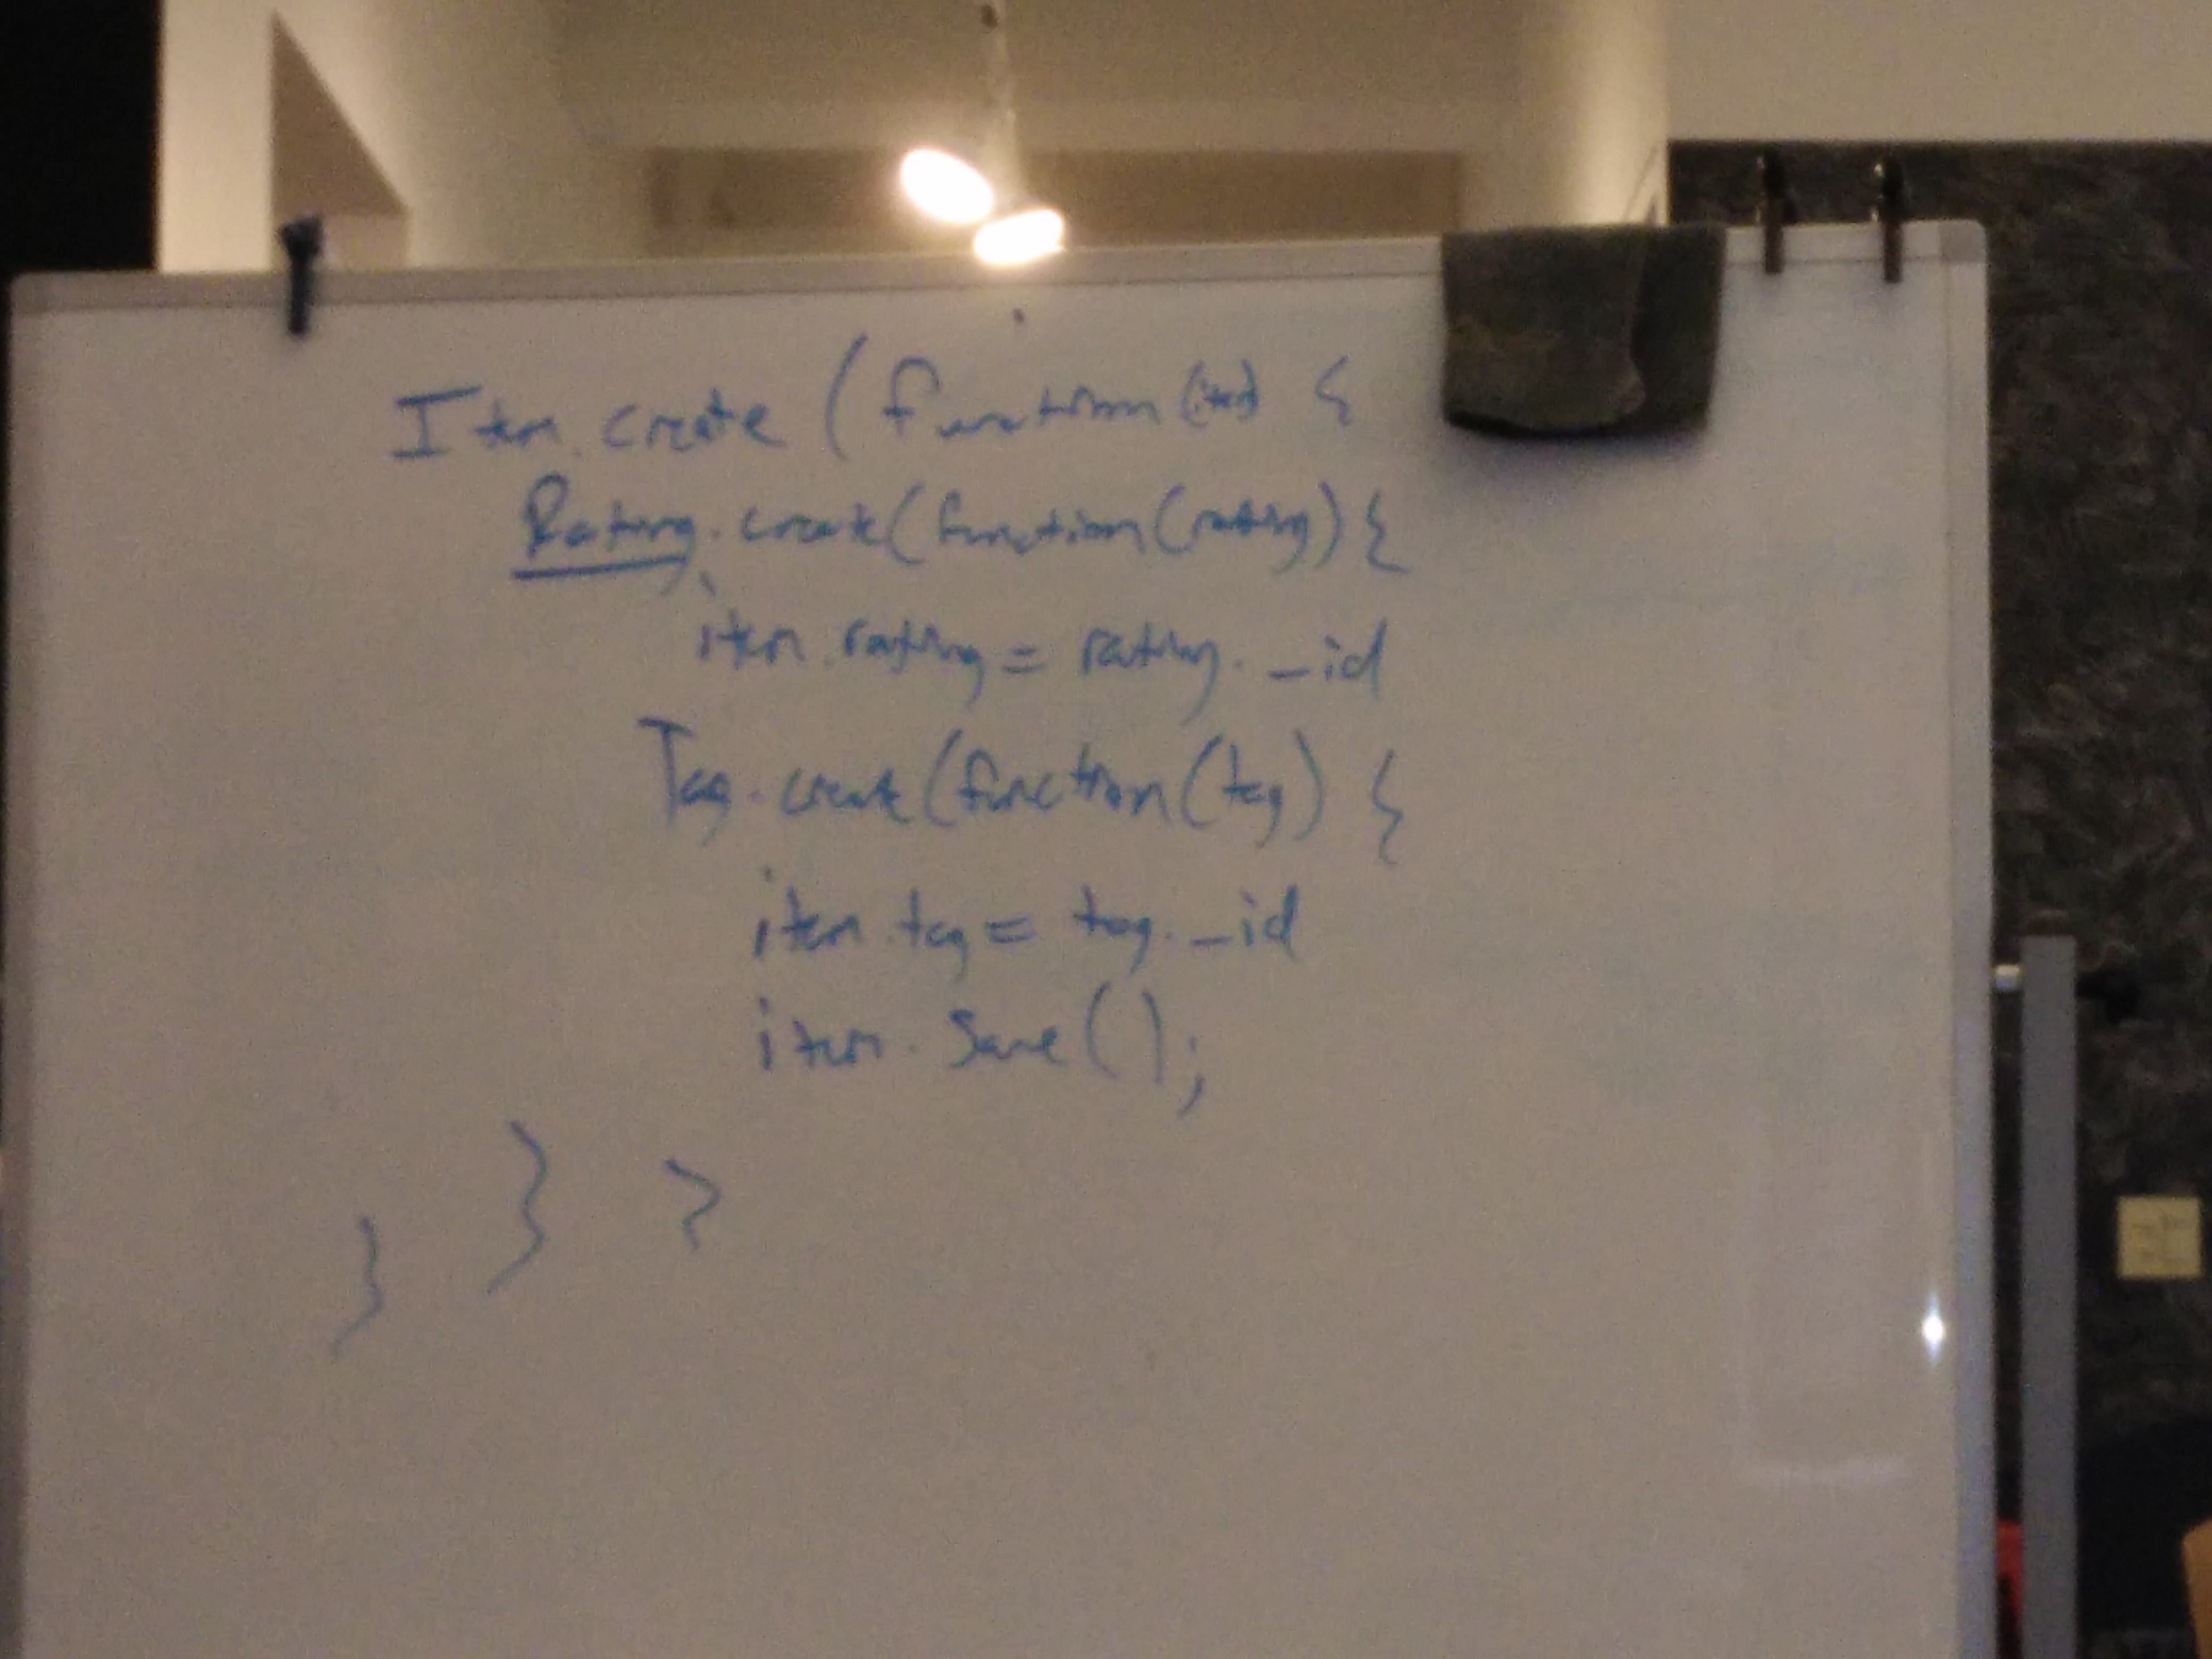 Item.create(function(item) {
Rating.create(function(rating) {
item.rating = rating._id
Tag.create(function(tag) {
item.tag = tag._id
item.save();
} } }